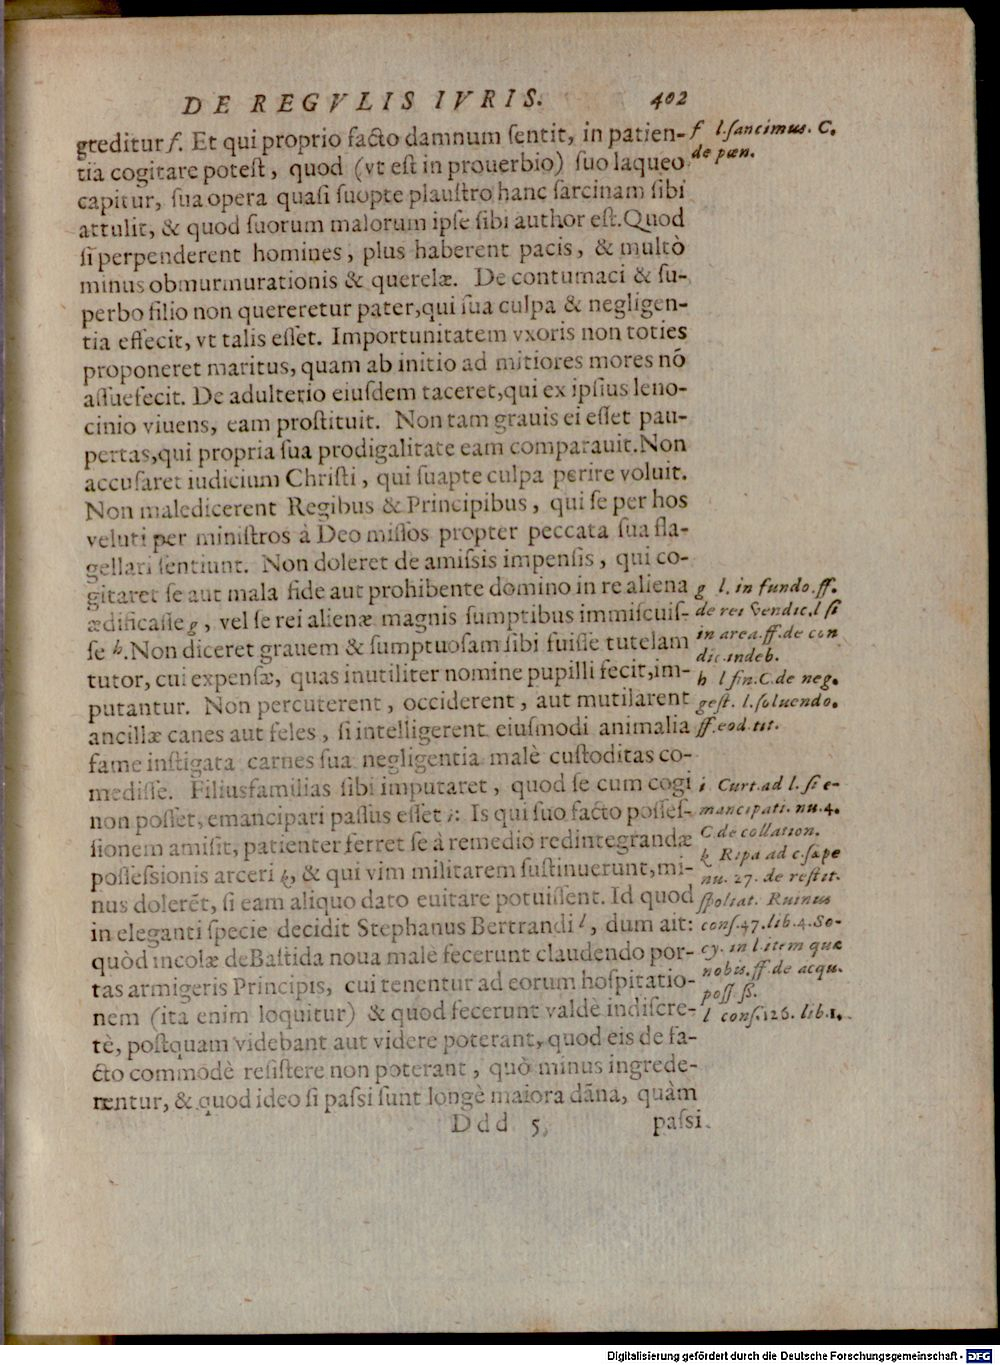 DE REGVLIS IVRIS. 402
greditur f. Et qui proprio facto damnum sentit, in patien-
tia cogitare potest, quod (vt est in prouerbio) suo laqueo
capitur, sua opera quasi suopte plaustro hanc sarcinam sibi
attulit, & quod suorum malorum ipse sibi author est. Quod
si perpenderent homines, plus haberent pacis, & multò
minus obmurmurationis & querelæ. De contumaci & su-
perbo filio non quereretur pater, qui sua culpa & negligen-
tia effecit, vt talis esset. Importunitatem vxoris non toties
proponeret maritus, quam ab initio ad mitiores mores nō
assuefecit. De adulterio eiusdem taceret, qui ex ipsius leno-
cinio viuens, eam prostituit. Non tam grauis ei esset pau-
pertas, qui propria sua prodigalitate eam comparauit. Non
accusaret iudicium Christi, qui suapte culpa perire voluit.
Non maledicerent Regibus & Principibus, qui se per hos
veluti per ministros à Deo missos propter peccata sua fla-
gellari sentiunt. Non doleret de amissis impensis, qui co-
gitaret se aut mala fide aut prohibente domino in re aliena
ædificasse g, vel se rei alienæ magnis sumptibus immiscuis-
se h. Non diceret grauem & sumptuosam sibi fuisse tutelam
tutor, cui expensæ, quas inutiliter nomine pupilli fecit, im-
putantur. Non percuterent, occiderent, aut mutilarent
ancillæ canes aut feles, si intelligerent eiusmodi animalia
fame instigata carnes sua negligentia malè custoditas co-
medisse. Filiusfamilias sibi imputaret, quod se cum cogi
non posset, emancipari passus esset i: Is qui suo facto posses-
sionem amisit, patienter ferret se à remedio redintegrandæ
possessionis arceri k, & qui vim militarem sustinuerunt, mi-
nus dolerēt, si eam aliquo dato euitare potuissent. Id quod
in eleganti specie decidit Stephanus Bertrandi l, dum ait:
quòd incolæ de Bastida noua malè fecerunt claudendo por-
tas armigeris Principis, cui tenentur ad eorum hospitatio-
nem (ita enim loquitur) & quod fecerunt valdè indiscre-
tè, postquam videbant aut videre poterant, quod eis de fa-
cto commodè resistere non poterant, quò minus ingrede-
rentur, & quod ideo si passi sunt longè maiora dāna, quàm
Ddd 5 passi
f l. sancimus. C.
de pœn.
g l. in fundo. ff.
de rei vendic. l si
in area. ff. de con
dic. indeb.
h l fin. C. de neg.
gest. l. soluendo.
ff. eod. tit.
i Curt. ad l. si e-
mancipati. nu. 4.
C de collation.
k Ripa ad c. sæpe
nu. 27. de restit.
spoliat. Ruinus
cons. 47. lib. 4. So-
cy. in l. item quæ
nobis. ff. de acqu.
poss. ß.
l cons. 126. lib. 1.
Digitalisierung gefördert durch die Deutsche Forschungsgemeinschaft - DFG